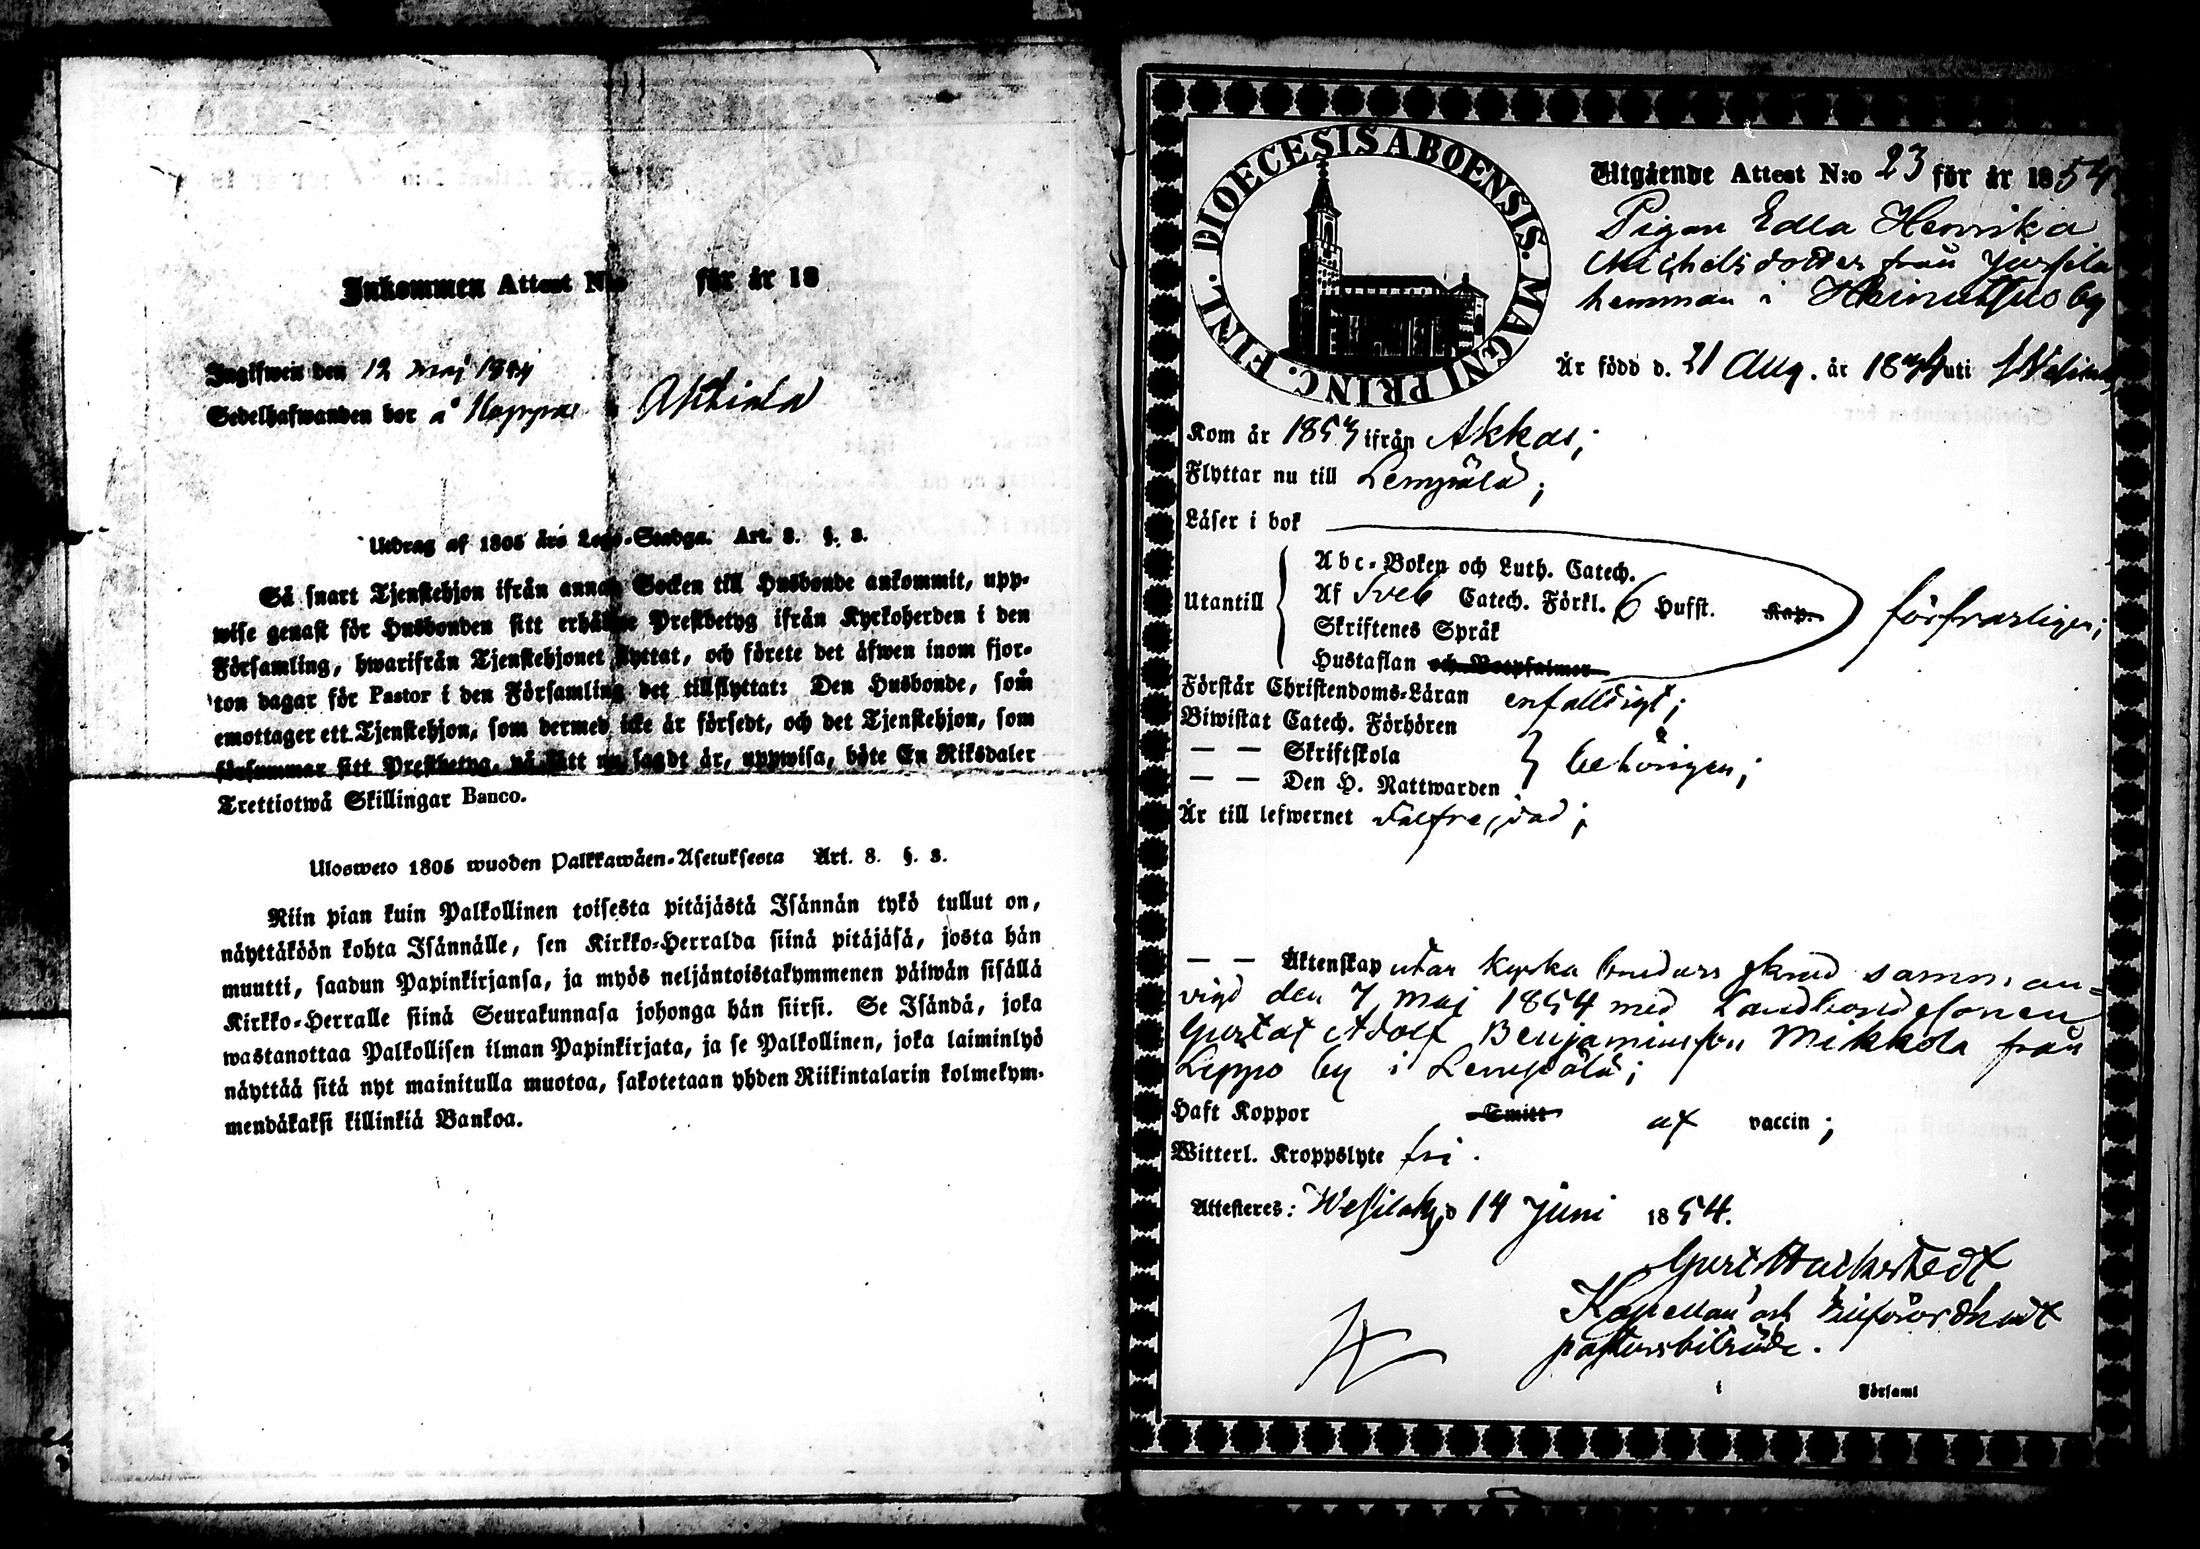 Inkommen Attest N:o för år 18
Ingifwen den 12 Maj 1844
Sedelhafwanden bor å
Utdrag af 1805 års Lego-Stadga. Art. 8. §. 2.
Så snart Tjenstehjon ifrån annan Socken till Husbonde ankommit, upp-
wise genast för Husbonden sitt erhållne Prestbetyg ifrån Kyrkoherden i den
Församling, hwarifrån Tjenstehjonet flyttat, och förete det äfwen inom fjor-
ton dagar för Pastor i den Församling det tillflyttat: Den Husbonde, som
emottager ett Tjenstehjon, som dermed icke är försedt, och det Tjenstehjon, som
försummar sitt Prestbetyg, på sätt nu sagdt är, uppwisa, böte En Riksdaler
Trettiotwå Skillingar Banco.
Ulosweto 1805 wuoden Palkkawäen-Asetuksesta Art. 8. §. 2.
Niin pian kuin Palkollinen toisesta pitäjästä Isännän tykö tullut on,
näyttäköön kohta Isännälle, sen Kirkko-Herralda siinä pitäjäsä, josta hän
muutti, saadun Papinkirjansa, ja myös neljäntoistakymmenen päiwän sisällä
Kirkko-Herralle siinä Seurakunnasa johonga hän siirsi. Se Isändä, joka
wastanottaa Palkollisen ilman Papinkirjata, ja se Palkollinen, joka laiminlyö
näyttää sitä nyt mainitulla muotoa, sakotetaan yhden Riikintalarin kolmekym-
mendäkaksi killinkiä Bankoa.
DIOECESIS ABOENSIS. MAGNI PRINC. FINL.
Utgående Attest N:o 23 för år 1854
Pigan Edla Henrika
Michelsdotter från
hemman i by
Är född d. 21 Aug. år 1834 uti
Kom år 1853 ifrån Akkas;
Flyttar nu till Lempälä;
Läser i bok
Utantill
Abc-Boken och Luth. Catech.
Af Sveb Catech. Förkl. 6 Hufst. Kap.
Skriftenes Språk
Hustaflan och Botpsalmer
försvarligen;
Förstår Christendoms-Läran enfaldigt;
Biwistat Catech. Förhören
— — Skriftskola
— — Den H. Nattwarden
behörigen;
Är till lefwernet välfrejdad;
— — Äktenskap utar kyrka bruders skrud samman=
vigd den 7 Maj 1854 med Landbondesonen
Gustaf Adolf Benjaminsson Mikkola från
Leppo by i Lempälä;
Haft Koppor Smitt af vaccin;
Witterl. Kroppslyte fri.
Attesteres: Wesilaks d 14 Juni 1854.
Gust Hackstedt
Kapellan och
pastorsbiträde.
i Församl